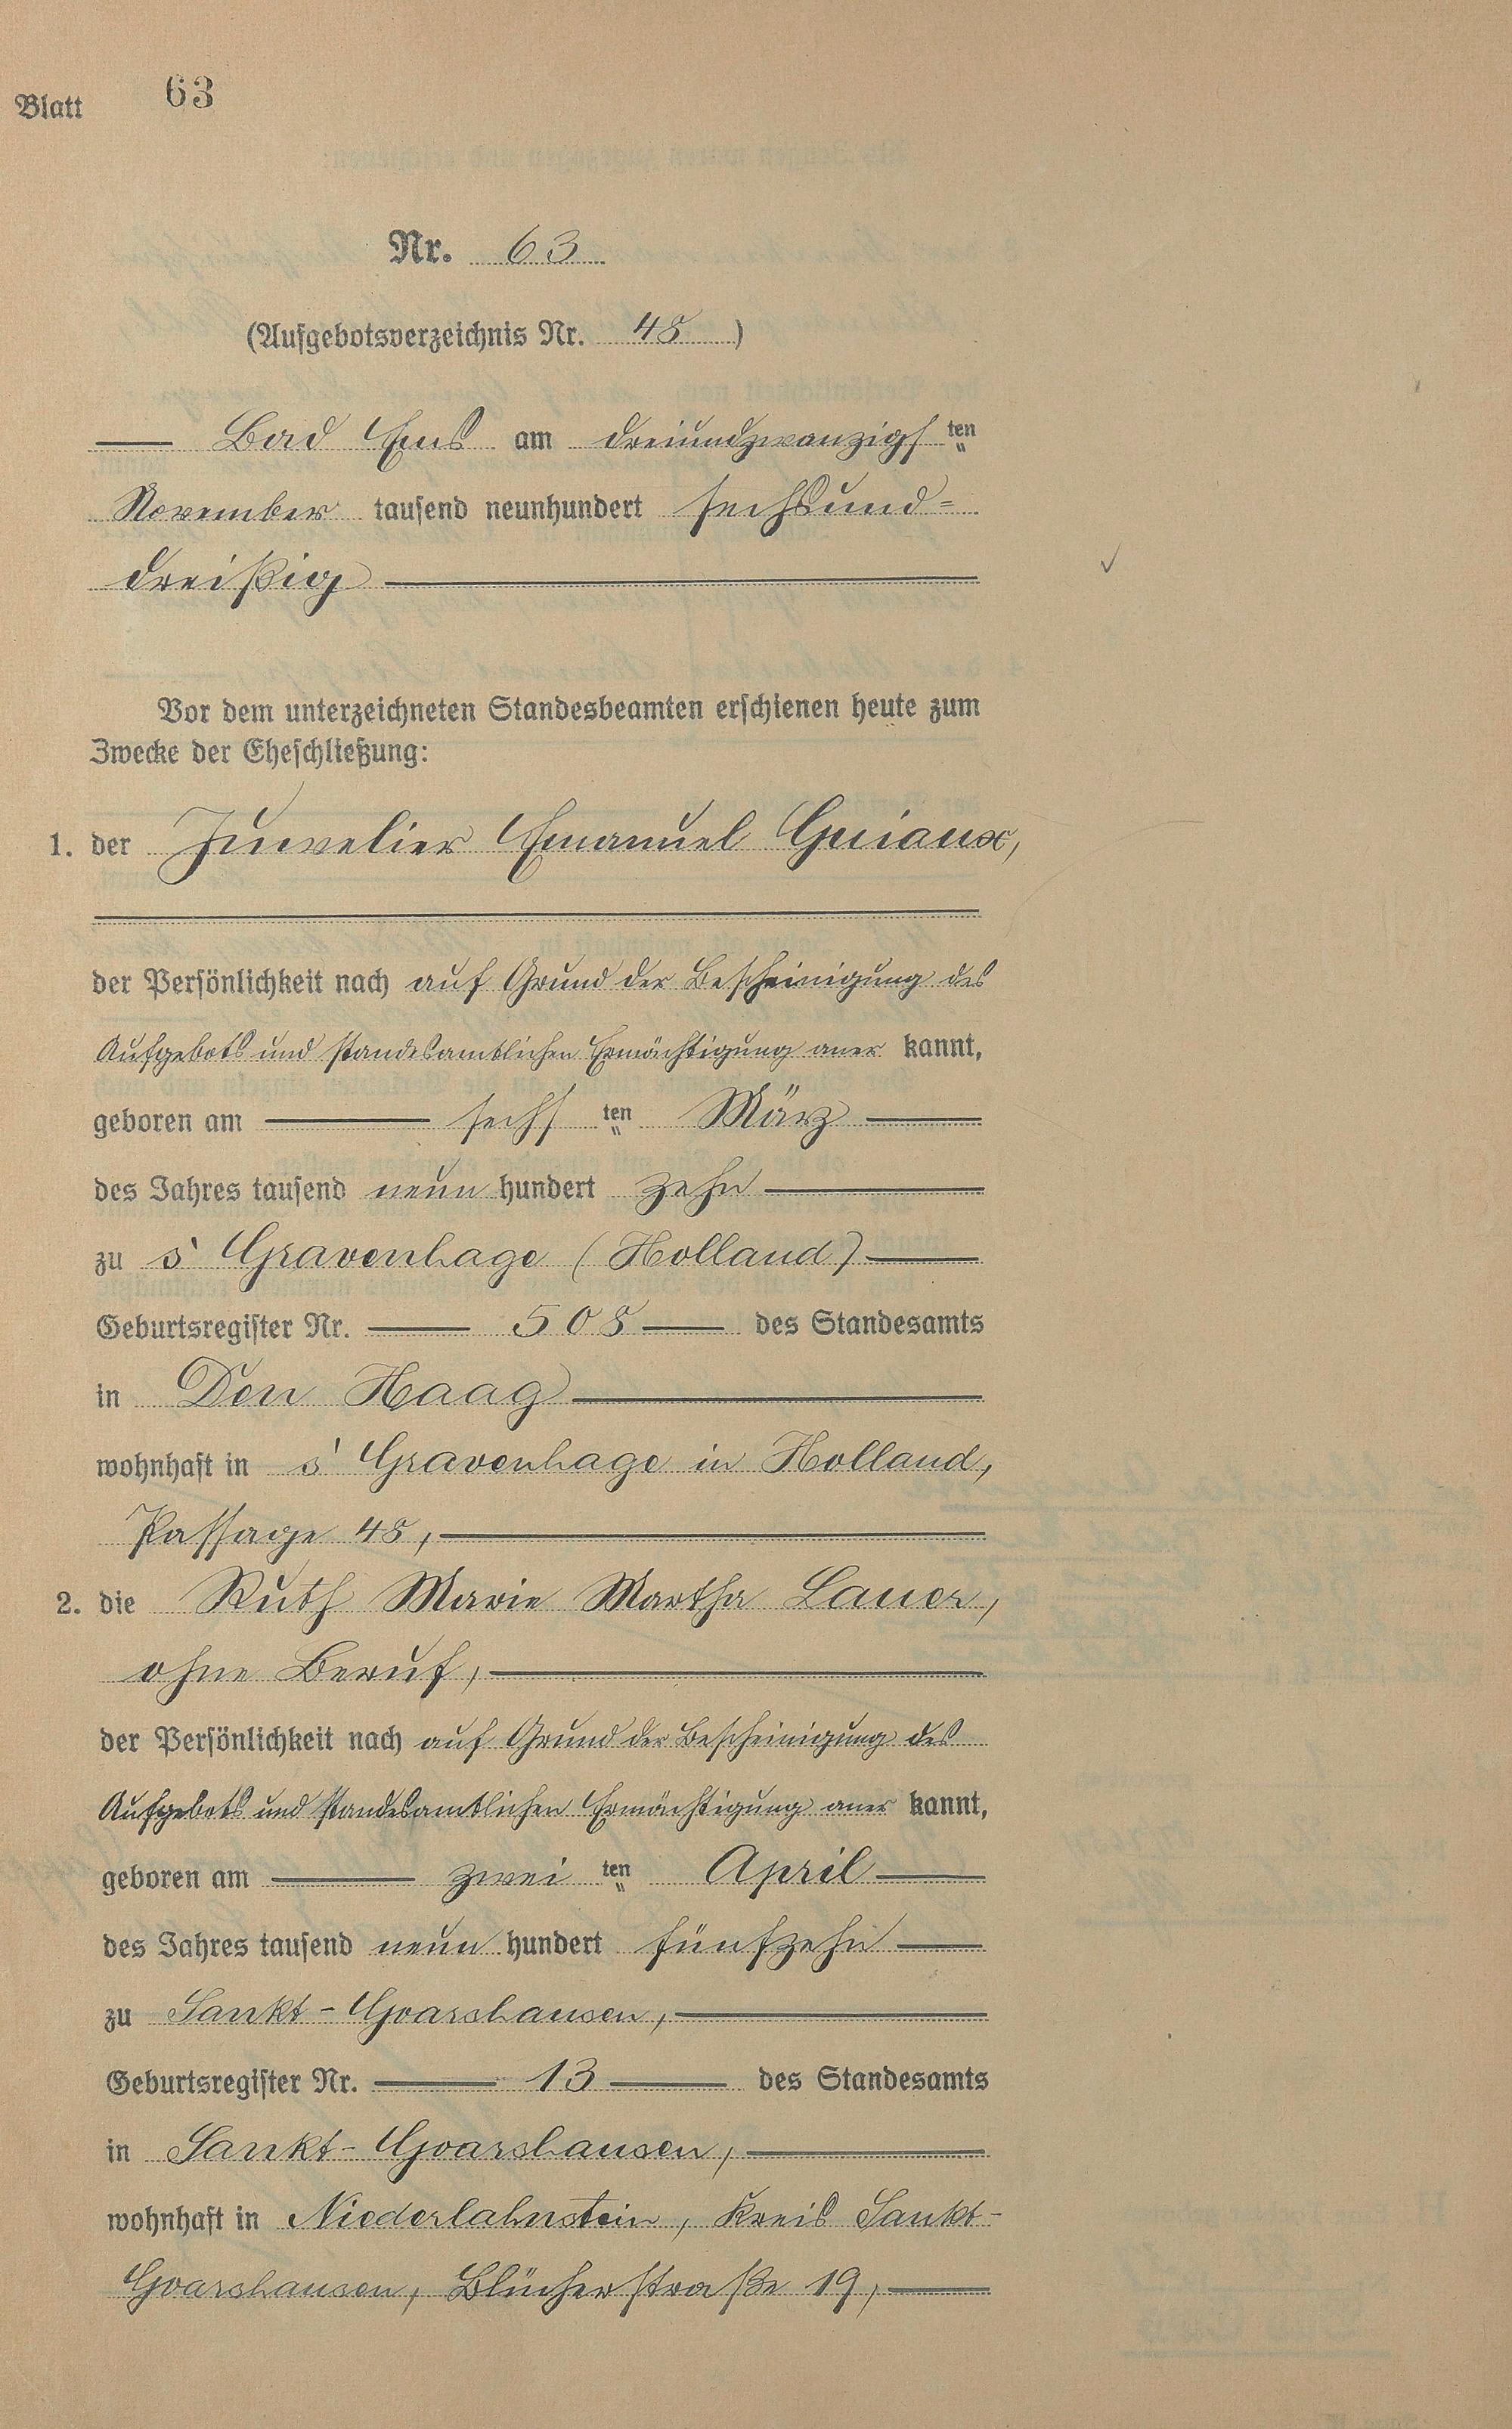 Blatt 63
Nr. 63
(Aufgebotsverzeichnis Nr. 48)
Bad Ems am dreiundzwanzigsten
November tausend neunhundert sechsund=
dreißig
Vor dem unterzeichneten Standesbeamten erschienen heute zum
Zwecke der Eheschließung:
1. der Juwelier Emanuel Guiaux,
der Persönlichkeit nach auf Grund der Bescheinigung des
Aufgebots und standesamtlichen Ermächtigung anerkannt,
geboren am sechsten März
des Jahres tausend neunhundert zehn
zu s' Gravenhage (Holland)
Geburtsregister Nr. 508 des Standesamts
in Den Haag
wohnhaft in s' Gravenhage in Holland,
Passage 48,
2. die Ruth Marie Martha Lauer,
ohne Beruf,
der Persönlichkeit nach auf Grund der Bescheinigung des
Aufgebots und standesamtlichen Ermächtigung anerkannt,
geboren am zweiten April
des Jahres tausend neunhundert fünfzehn
zu Sankt-Goarshausen,
Geburtsregister Nr. 13 des Standesamts
in Sankt-Goarshausen,
wohnhaft in Niederlahnstein, Kreis Sankt-
Goarshausen, Blücherstraße 19,